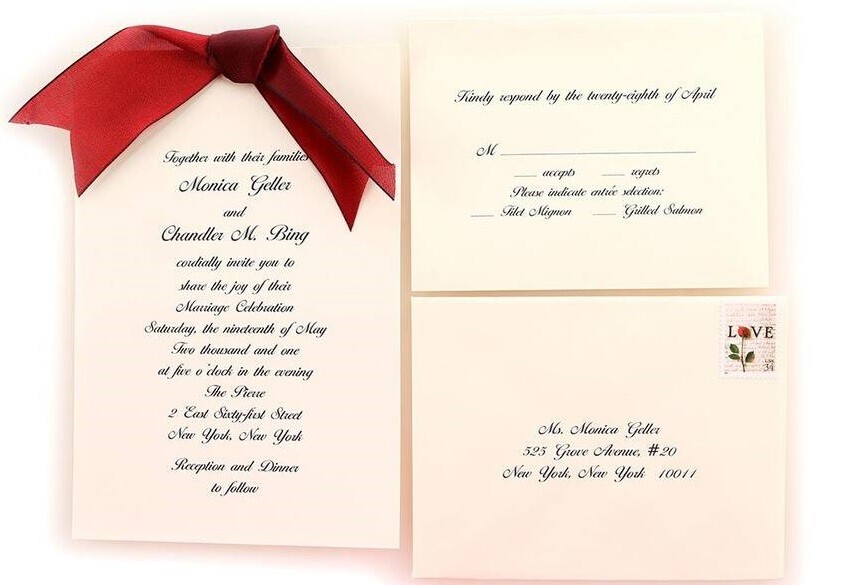 Together with their families
Monica Geller
and
Chandler M. Bing
cordially invite you to
share the joy of their
Marriage Celebration
Saturday, the nineteenth of May
Two thousand and one
at five o'clock in the evening
The Pierre
2 East Sixty-first Street
New York, New York
Reception and Dinner
to follow
Kindly respond by the twenty-eighth of April
M
accepts regrets
Please indicate entrée selection:
Filet Mignon Grilled Salmon
LOVE
USA
34
Ms. Monica Geller
525 Grove Avenue, #20
New York, New York 10011